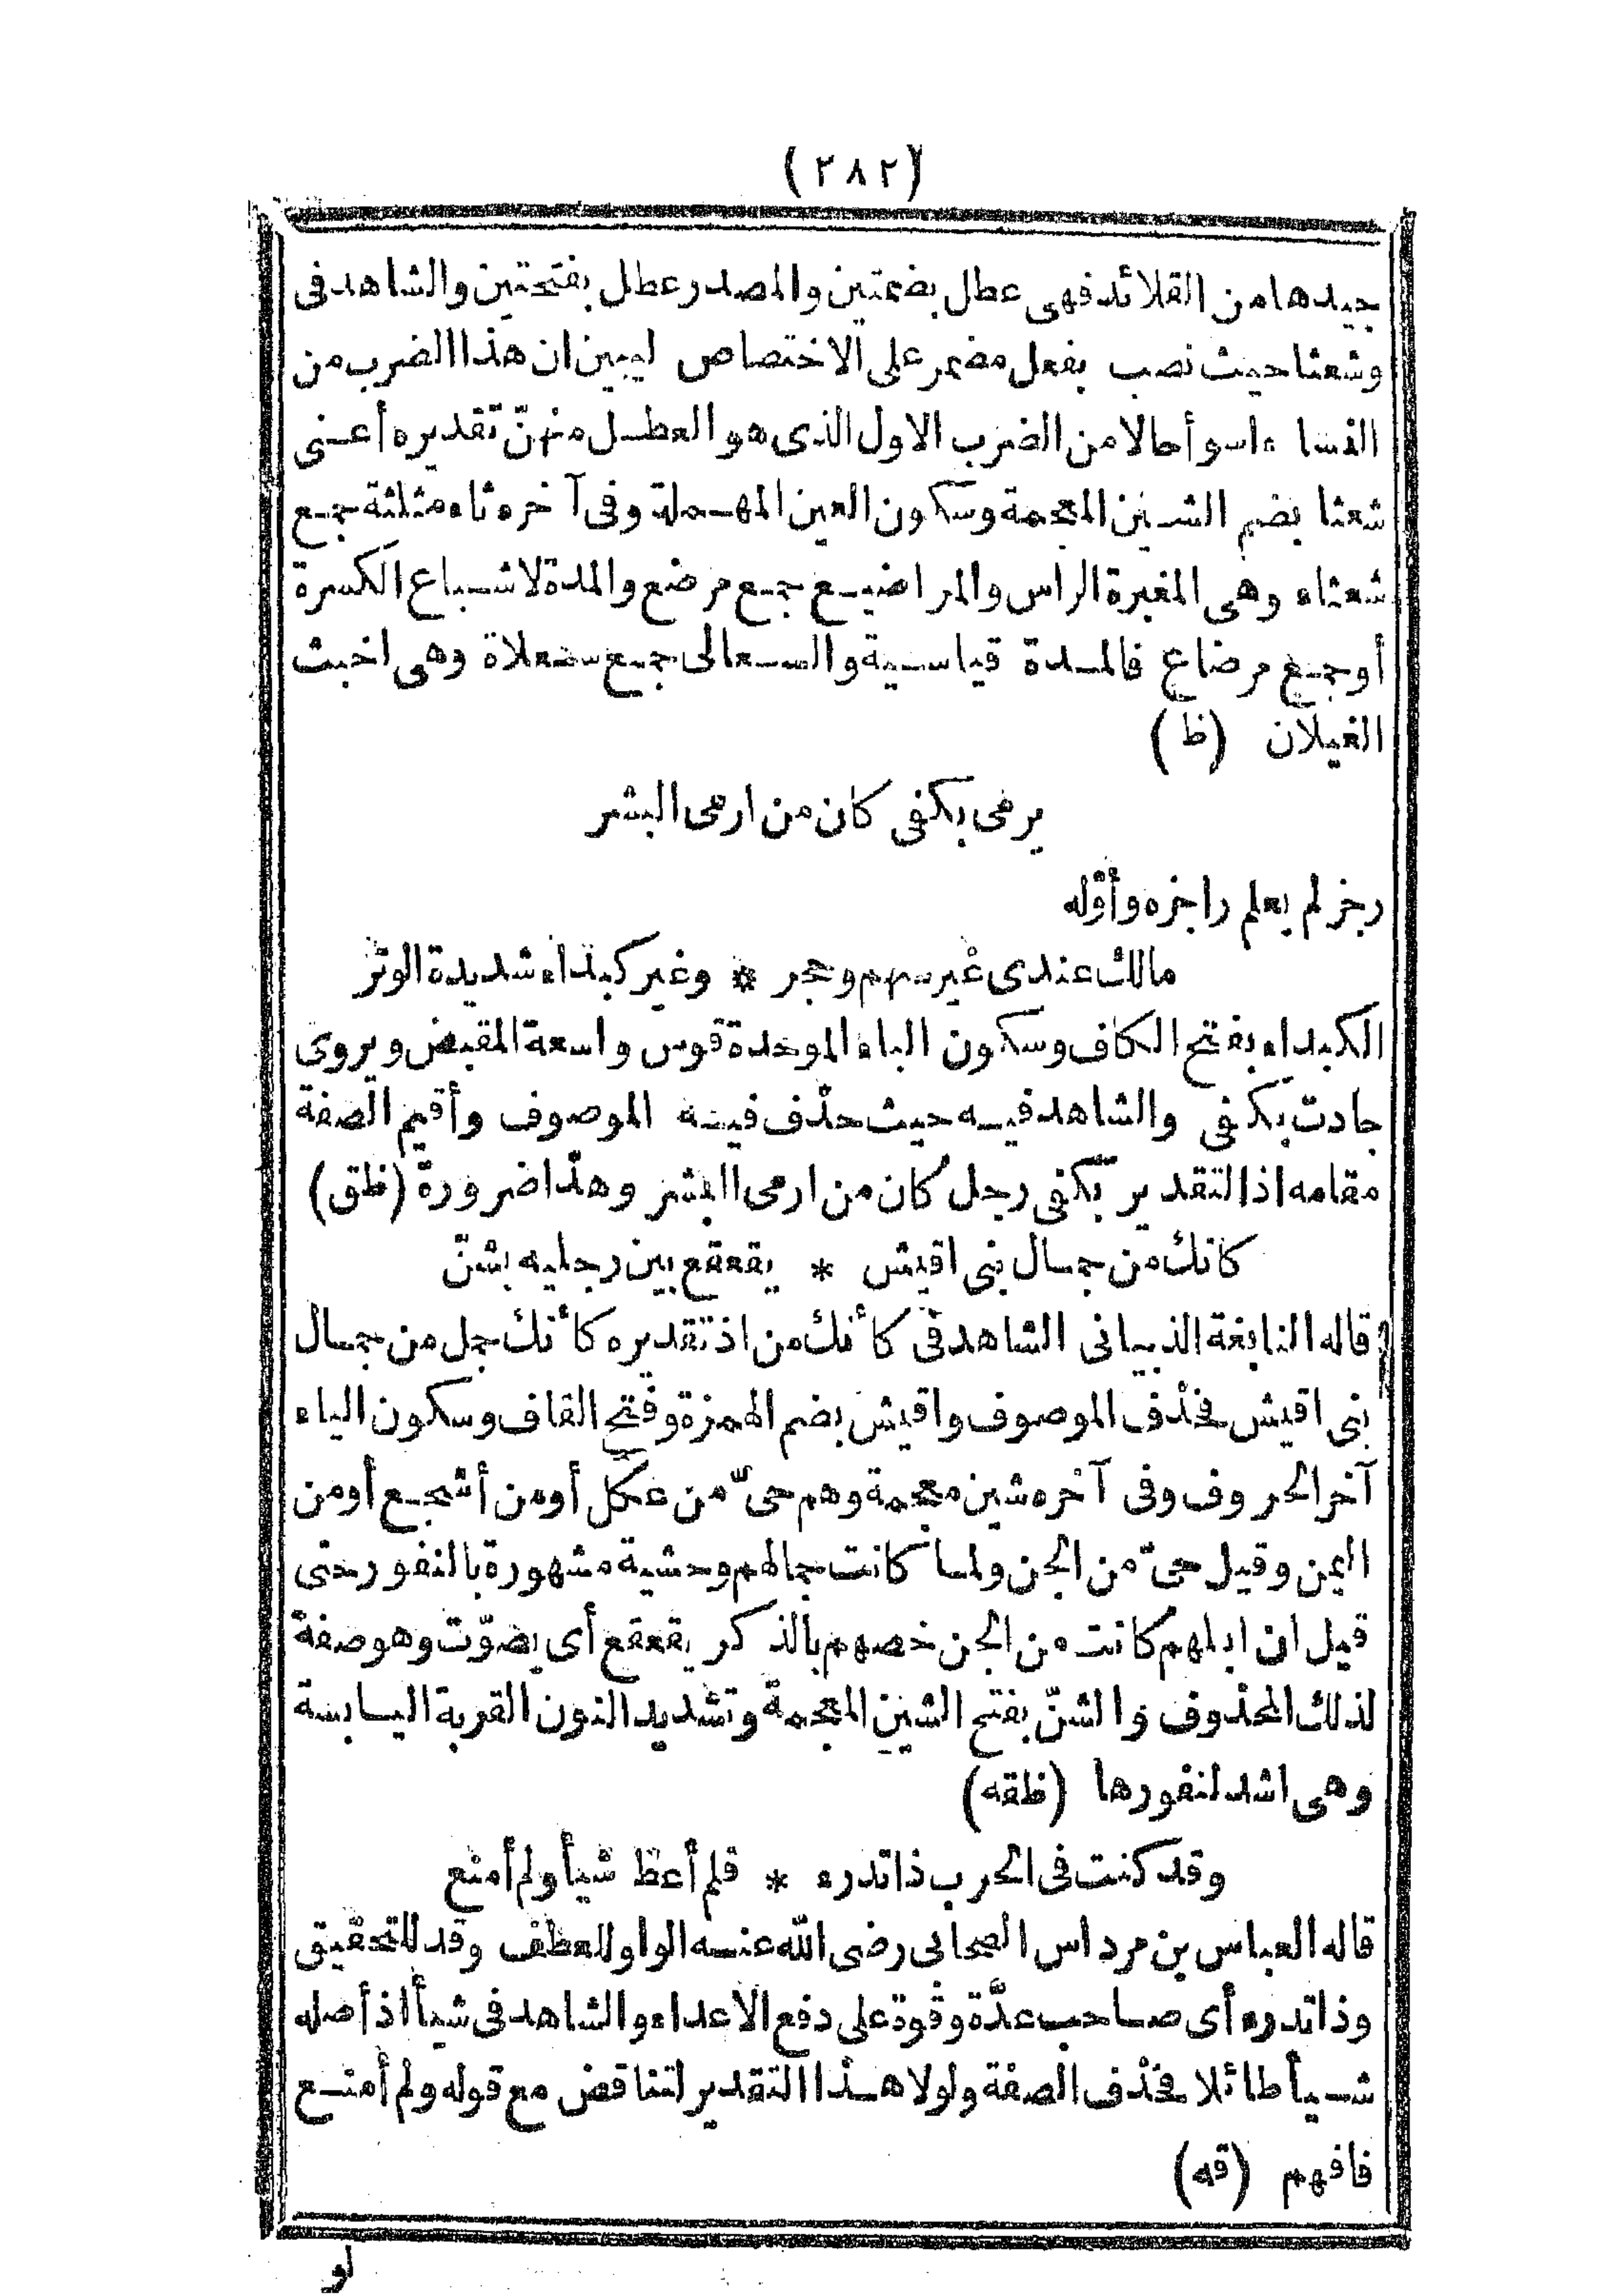 (٢٨٢)
جيدها من القلائد فهى عطل بضمتين والمصدر عطل بفتحتين والشاهد فى
وشعثا حيث نصب بفعل مضمر على الاختصاص ليبين ان هذا الضرب من
النساء اسوأ حالا من الضرب الاول الذى هو العطل منهنّ تقديره أعنى
شعثا بضم الشين المعجمة وسكون العين المهملة وفى آخره ثاء مثلثة جمع
شعثاء وهى المغبرة الرأس والمراضيع جمع مرضع والمدة لاشباع الكسرة
أو جمع مرضاع فالمدة قياسية والسعالى جمع سعلاة وهى اخبث
الغيلان (ظ)
يرمى بكفى كان من ارمى البشر
رجز لم يعلم راجزه وأوّله
مالك عندى غير سهم وحجر * وغير كبداء شديدة الوتر
الكبداء بفتح الكاف وسكون الباء الموحدة قوس واسعة المقبض ويروى
جادت بكفى والشاهد فيه حيث حذف فيه الموصوف وأقيم الصفة
مقامه اذ التقدير بكفى رجل كان من ارمى البشر وهذا ضرورة (ظق)
كانك من جمال بنى اقيش * يقعقع بين رجليه بشنّ
قاله النابغة الذبيانى الشاهد فى كأنك من اذ تقديره كأنك جمل من جمال
بنى اقيش فحذف الموصوف واقيش بضم الهمزة وفتح القاف وسكون الياء
آخر الحروف وفى آخره شين معجمة وهم حىّ من عكل أو من أشجع أو من
اليمن وقيل حىّ من الجن ولما كانت جمالهم وحشية مشهورة بالنفور حتى
قيل ان ابلهم كانت من الجن خصهم بالذكر يقعقع أى يصوّت وهو صفة
لذلك المحذوف والشنّ بفتح الشين المعجمة وتشديد النون القربة اليابسة
وهى اشد لنفورها (ظقه)
وقد كنت فى الحرب ذا تدرء * فلم أعط شيأ ولم أمنع
قاله العباس بن مرداس الصحابى رضى الله عنه الواو للعطف وقد للتحقيق
وذا تدرء أى صاحب عدّة وقوة على دفع الاعداء والشاهد فى شيأ اذ أصله
شيأ طائلا فحذف الصفة ولولا هذا التقدير لتناقض مع قوله ولم أمنع
فافهم (قه)
لو